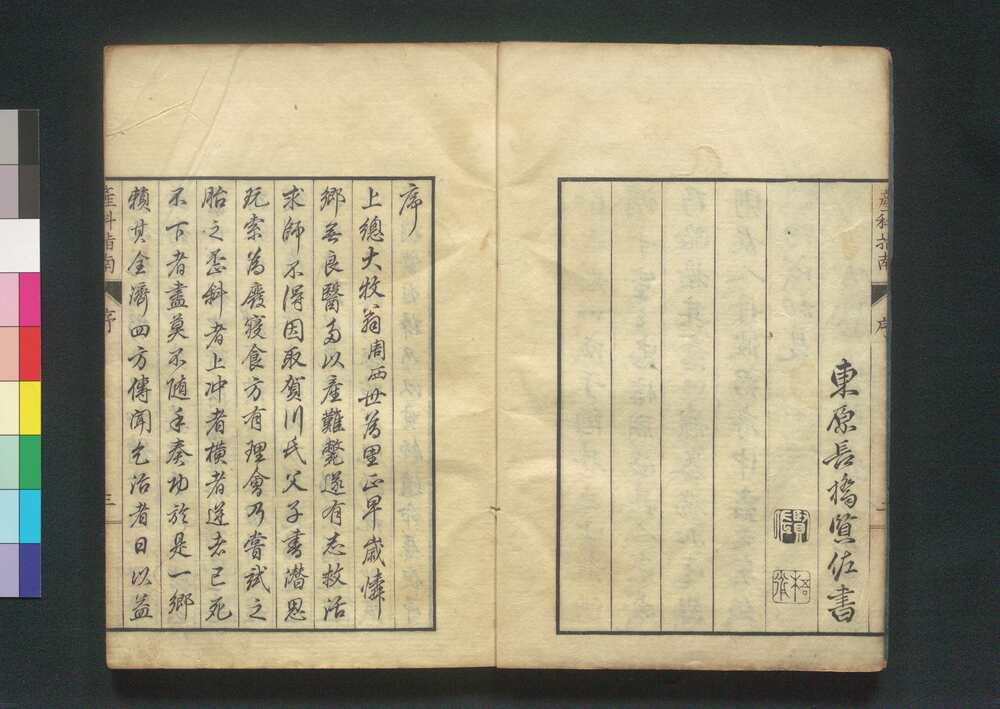 産科指南
序
二
東原長橋賢佐書
序
上總大牧翁周西世為里正早歲憐
鄉無良醫多以產難斃遂有志救活
求師不得因取賀川氏父子書潛思
玩索為廢寢食方有理會乃嘗試之
胎之歪斜者上冲者橫者逆者已死
不下者盡莫不隨手奏功於是一鄉
賴其全濟四方傳聞乞治者日以益
産科指南
序
三